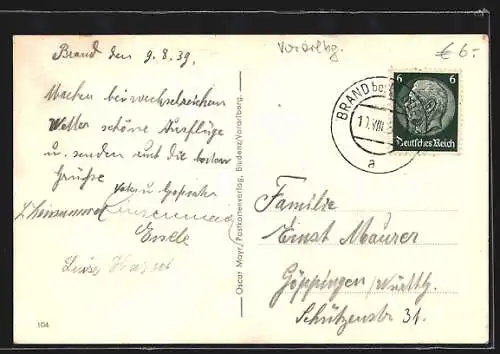 Brand den 9.8.39.
Vorarlbg.
€ 6.-
Machen bei wechselreichen
Wetter schöne Ausflüge
u. senden euch die besten
Grüße
Luise
104
Oscar Mayr, Postkartenverlag, Bludenz/Vorarlberg.
BRAND
VIII
a
6 6
Deutsches Reich
Familie
Ernst Maurer
Göppingen/Württbg.
Schützenstr. 31.